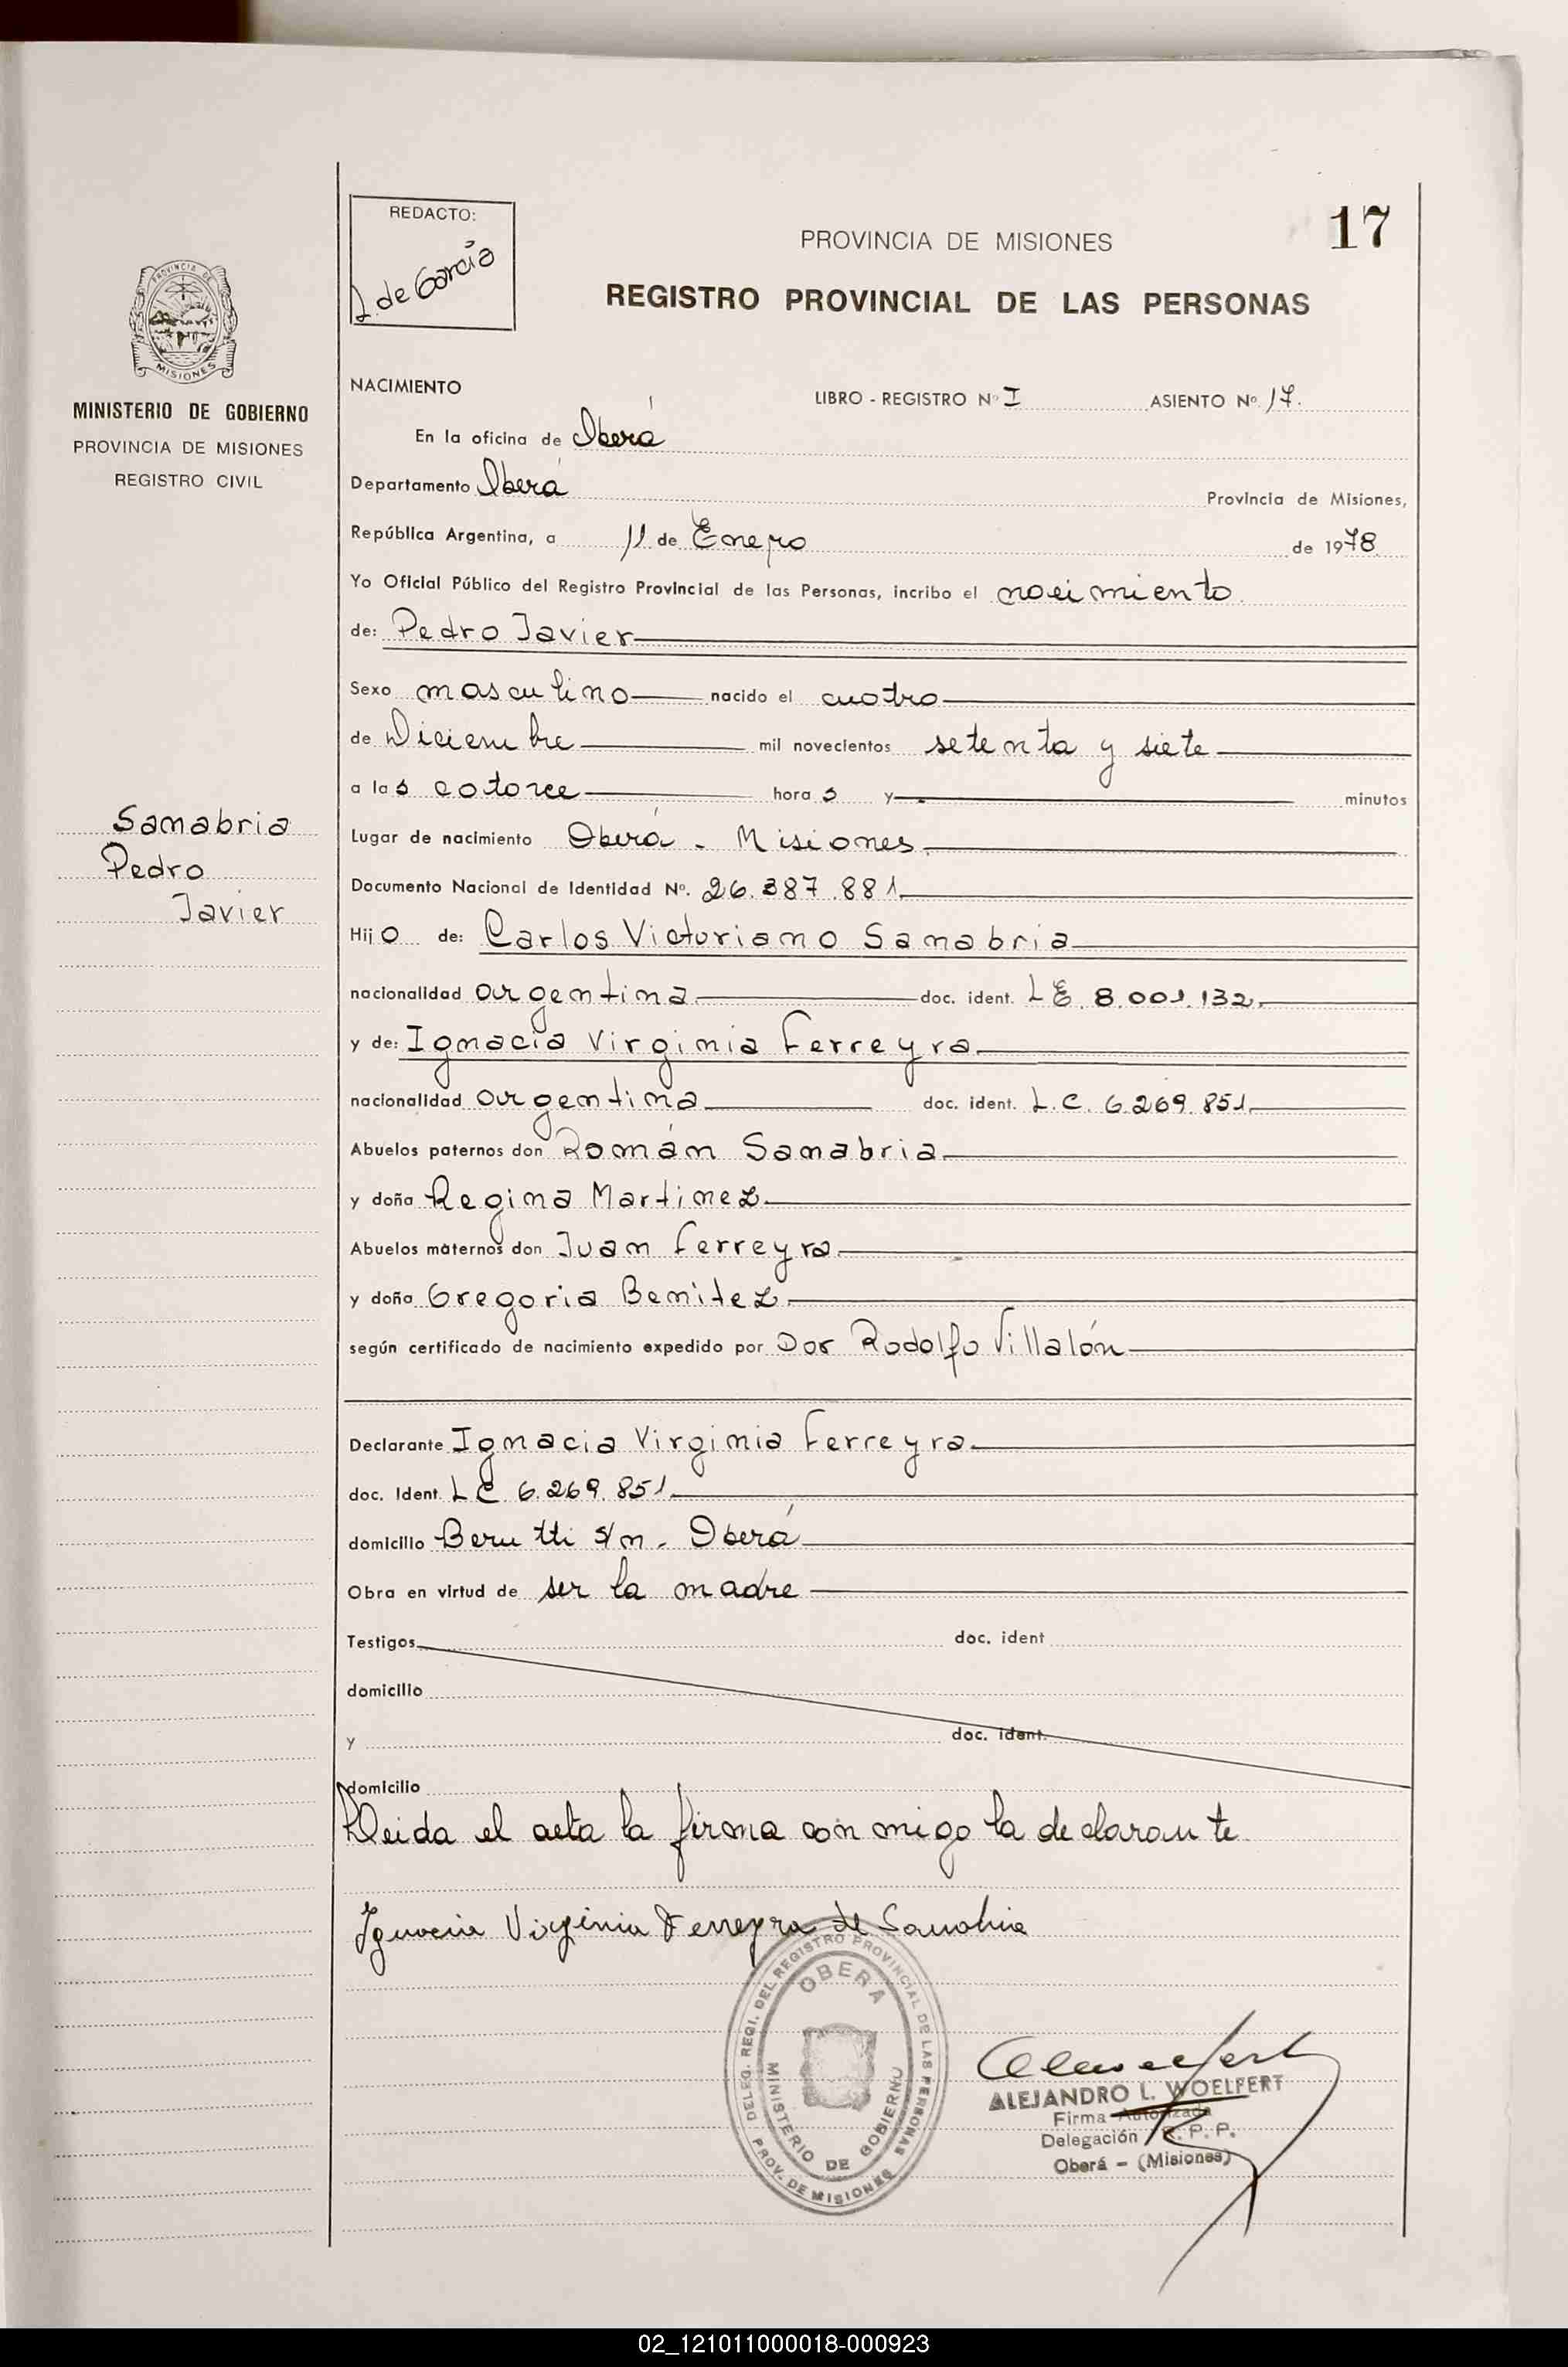 REDACTO:
L. de García
17
PROVINCIA DE MISIONES
REGISTRO PROVINCIAL DE LAS PERSONAS
PROVINCIA DE
MISIONES
MINISTERIO DE GOBIERNO
PROVINCIA DE MISIONES
REGISTRO CIVIL
NACIMIENTO
LIBRO - REGISTRO Nº I ASIENTO Nº 17.
En la oficina de Oberá
Departamento Oberá Provincia de Misiones,
República Argentina, a 11 de Enero de 1978
Yo Oficial Público del Registro Provincial de las Personas, incribo el nacimiento
de: Pedro Javier
Sexo masculino nacido el cuatro
de Diciembre mil novecientos setenta y siete
a las catorce horas y minutos
Samabria
Pedro
Javier
Lugar de nacimiento Oberá - Misiones
Documento Nacional de Identidad Nº. 26.387.881
Hijo de: Carlos Victoriano Sanabria
nacionalidad argentina doc. ident. LE 8.001.132
y de: Ignacia Virginia Ferreyra
nacionalidad argentina doc. ident. L.C. 6.269.851
Abuelos paternos don Román Sanabria
y doña Regina Martinez
Abuelos maternos don Juan Ferreyra
y doña Gregoria Benitez
según certificado de nacimiento expedido por Dor Rodolfo Villalón
Declarante Ignacia Virginia Ferreyra
doc. Ident. LC 6.269.851
domicilio Berutti s/n. Oberá
Obra en virtud de ser la madre
Testigos doc. ident
domicilio
y doc. ident.
domicilio
Leida el acta la firma conmigo la declarante
Ignacia Virginia Ferreyra de Sanabria
DELEG. REGI. DEL REGISTRO PROVINCIAL DE LAS PERSONAS
PROV. DE MISIONES
OBERA
MINISTERIO DE GOBIERNO
ALEJANDRO L. WOELFERT
Firma Autorizada
Delegación R. P. P.
Oberá - (Misiones)
02_121011000018-000923